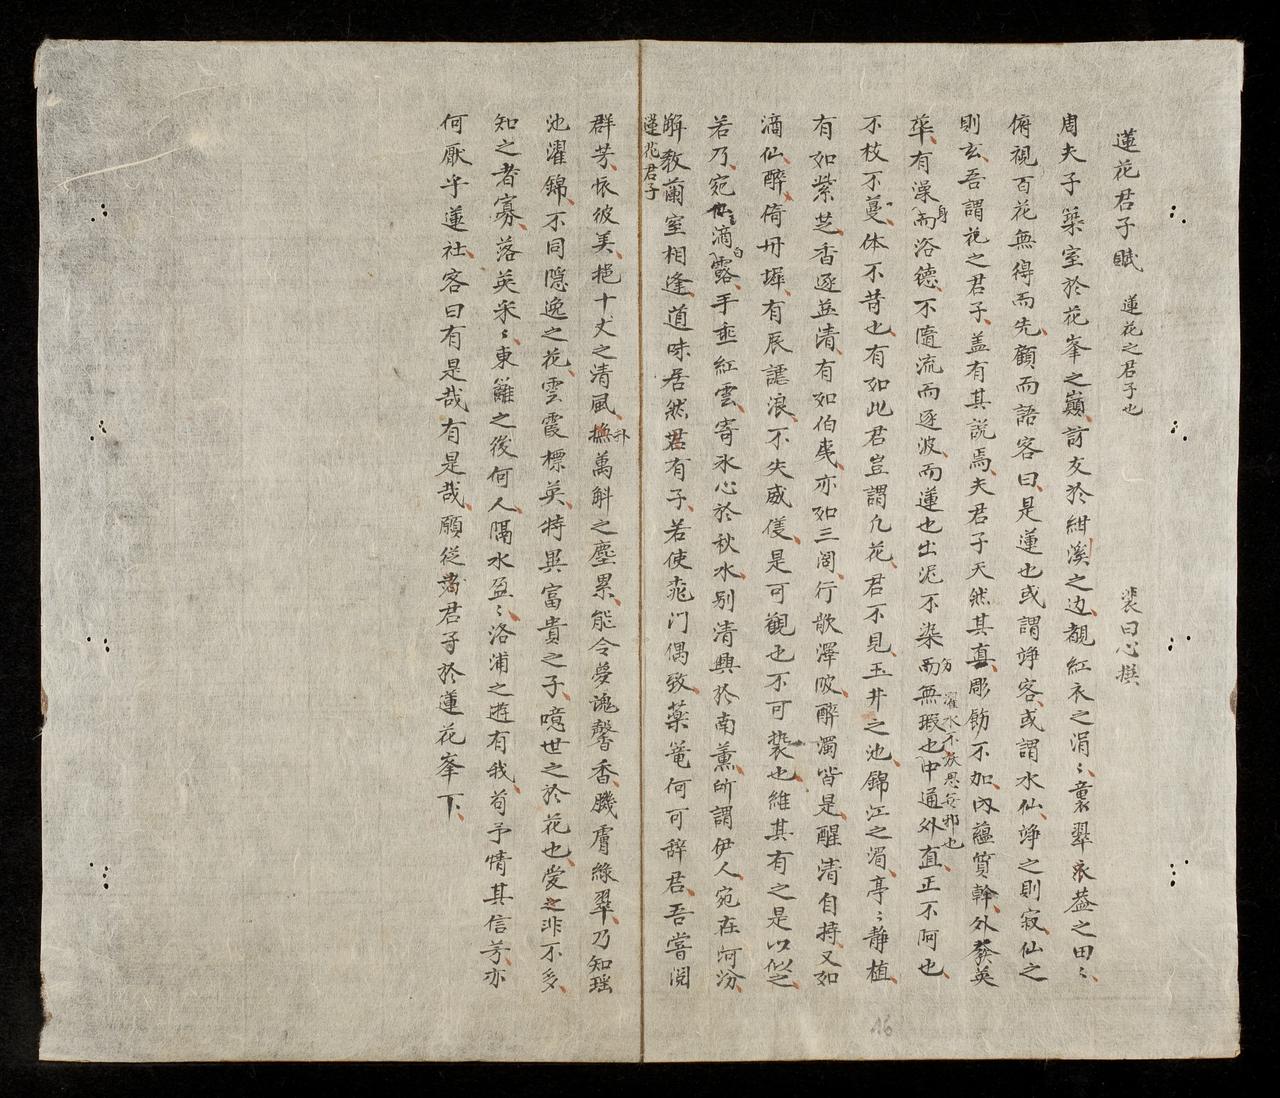 蓮花君子賦 蓮花之君子也 裴曰心撰
周夫子築室於花峯之巔訪友於紺溪之边覩紅衣之涓〻童裹翠衣葢之田〻
俯視百花無得而先顧而語客曰是蓮也或謂竫客或謂水仙竫之則寂仙之
則玄吾謂花之君子盖有其説焉夫君子天然其真彫飾不加内蘊質幹外發英
華有澡身而浴德不隨流而逐波而蓮也出泥不染方而無瑕也中通外直正不阿也
濯水不妖思無邪也
不枝不蔓体不昔也有如此君豈謂凢花君不見玉井之池錦江之湄亭〻静植
有如紫芝香逐益清有如伯夷亦如三閭行歌澤畋醉濁皆是醒清自持又如
滴仙醉倚丹墀有辰謔浪不失威儀是可觀也不可褻也維其有之是以似之
若乃宛 滴白露手垂紅雲寄氷心於秋水别清興於南薰所謂伊人宛在河汾
觧教蘭室相逢道味居然君有子若使 门偶致薬篭何可辞君吾嘗閲
蓮花君子
群芳恢彼美挹十丈之清風撫萬斛之塵累能令夢魂馨香 膚緑翠乃知瑶
池濯錦不同隠逸之花雲霞標英特異富貴之子噫世之於花也愛之非不多
知之者寡落英采〻東籬之後何人隔水盈〻洛浦之遊有我苟予情其信芳亦
何厭乎蓮社客曰有是哉有是哉願從 君子於蓮花峯下
16